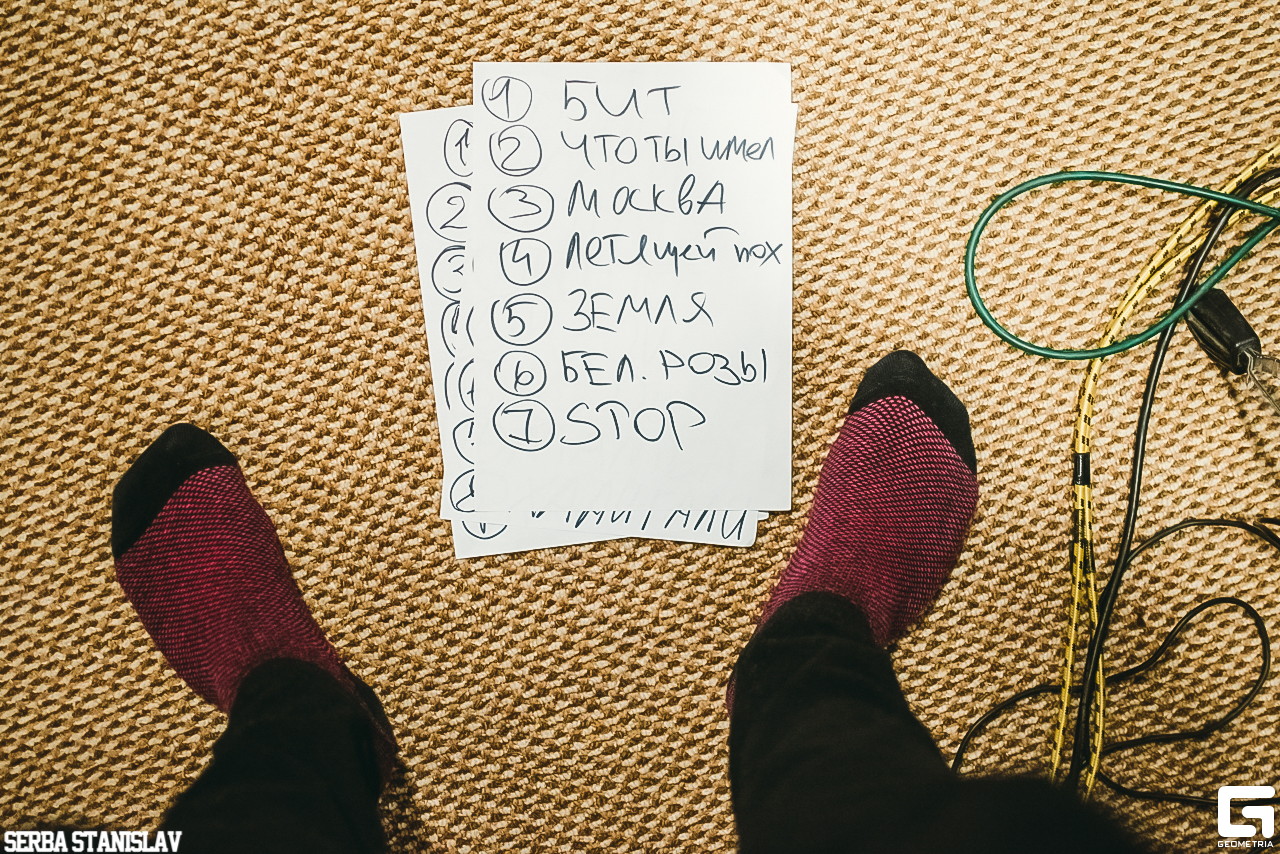 1 БИТ
2 ЧТО ТЫ имел
3 МОСКВА
4 ЛЕТЯЩЕЙ пох
5 ЗЕМЛЯ
6 БЕЛ. РОЗЫ
7 STOP
1
2
3
SERBA STANISLAV
GEOMETRIA